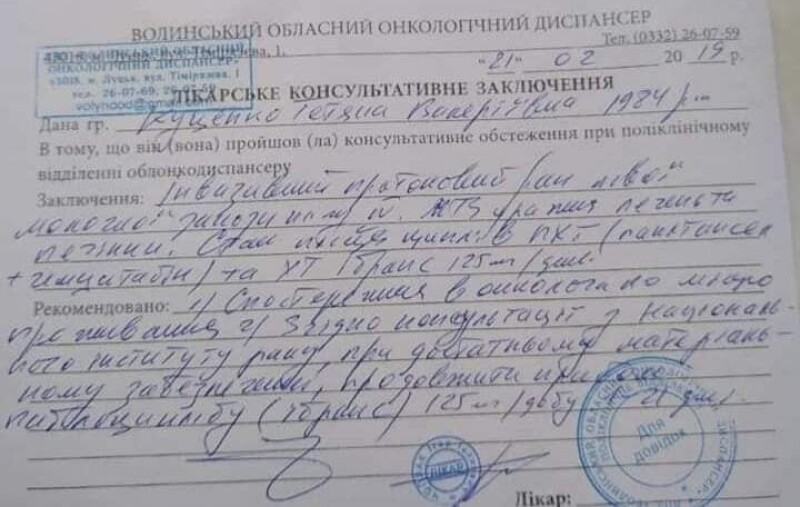 ВОЛИНСЬКИЙ ОБЛАСНИЙ ОНКОЛОГІЧНИЙ ДИСПАНСЕР
Тел. (0332) 26-07-59
ВОЛИНСЬКИЙ ОБЛАСНИЙ
ОНКОЛОГІЧНИЙ ДИСПАНСЕР»
м. Луцьк, вул. Тімірязєва, 1
тел. 26-07-69,
"21" 02 2019 р.
ЛІКАРСЬКЕ КОНСУЛЬТАТИВНЕ ЗАКЛЮЧЕННЯ
Дана гр. Куценко Тетяна Валеріївна 1984 р.
В тому, що він (вона) пройшов (ла) консультативне обстеження при поліклінічному
відділенні облонкодиспансеру
Заключення: протоковий рак лівої
молочної залози IV. MTS печінки
печінки. Стан після циклів ПХТ
+ гемцитабін) та ХТ Ібранс 125 мг
Рекомендовано: 1) Спостереження в онколога по місцю
проживання 2) Згідно консультації з Національ-
ного інституту раку, при достатньому матеріаль-
ному забезпеченні, продовжити прийом
палбоциклібу (Ібранс) 125 мг/добу 21 день
ЛІКАР
Для
довідок
Лікар: